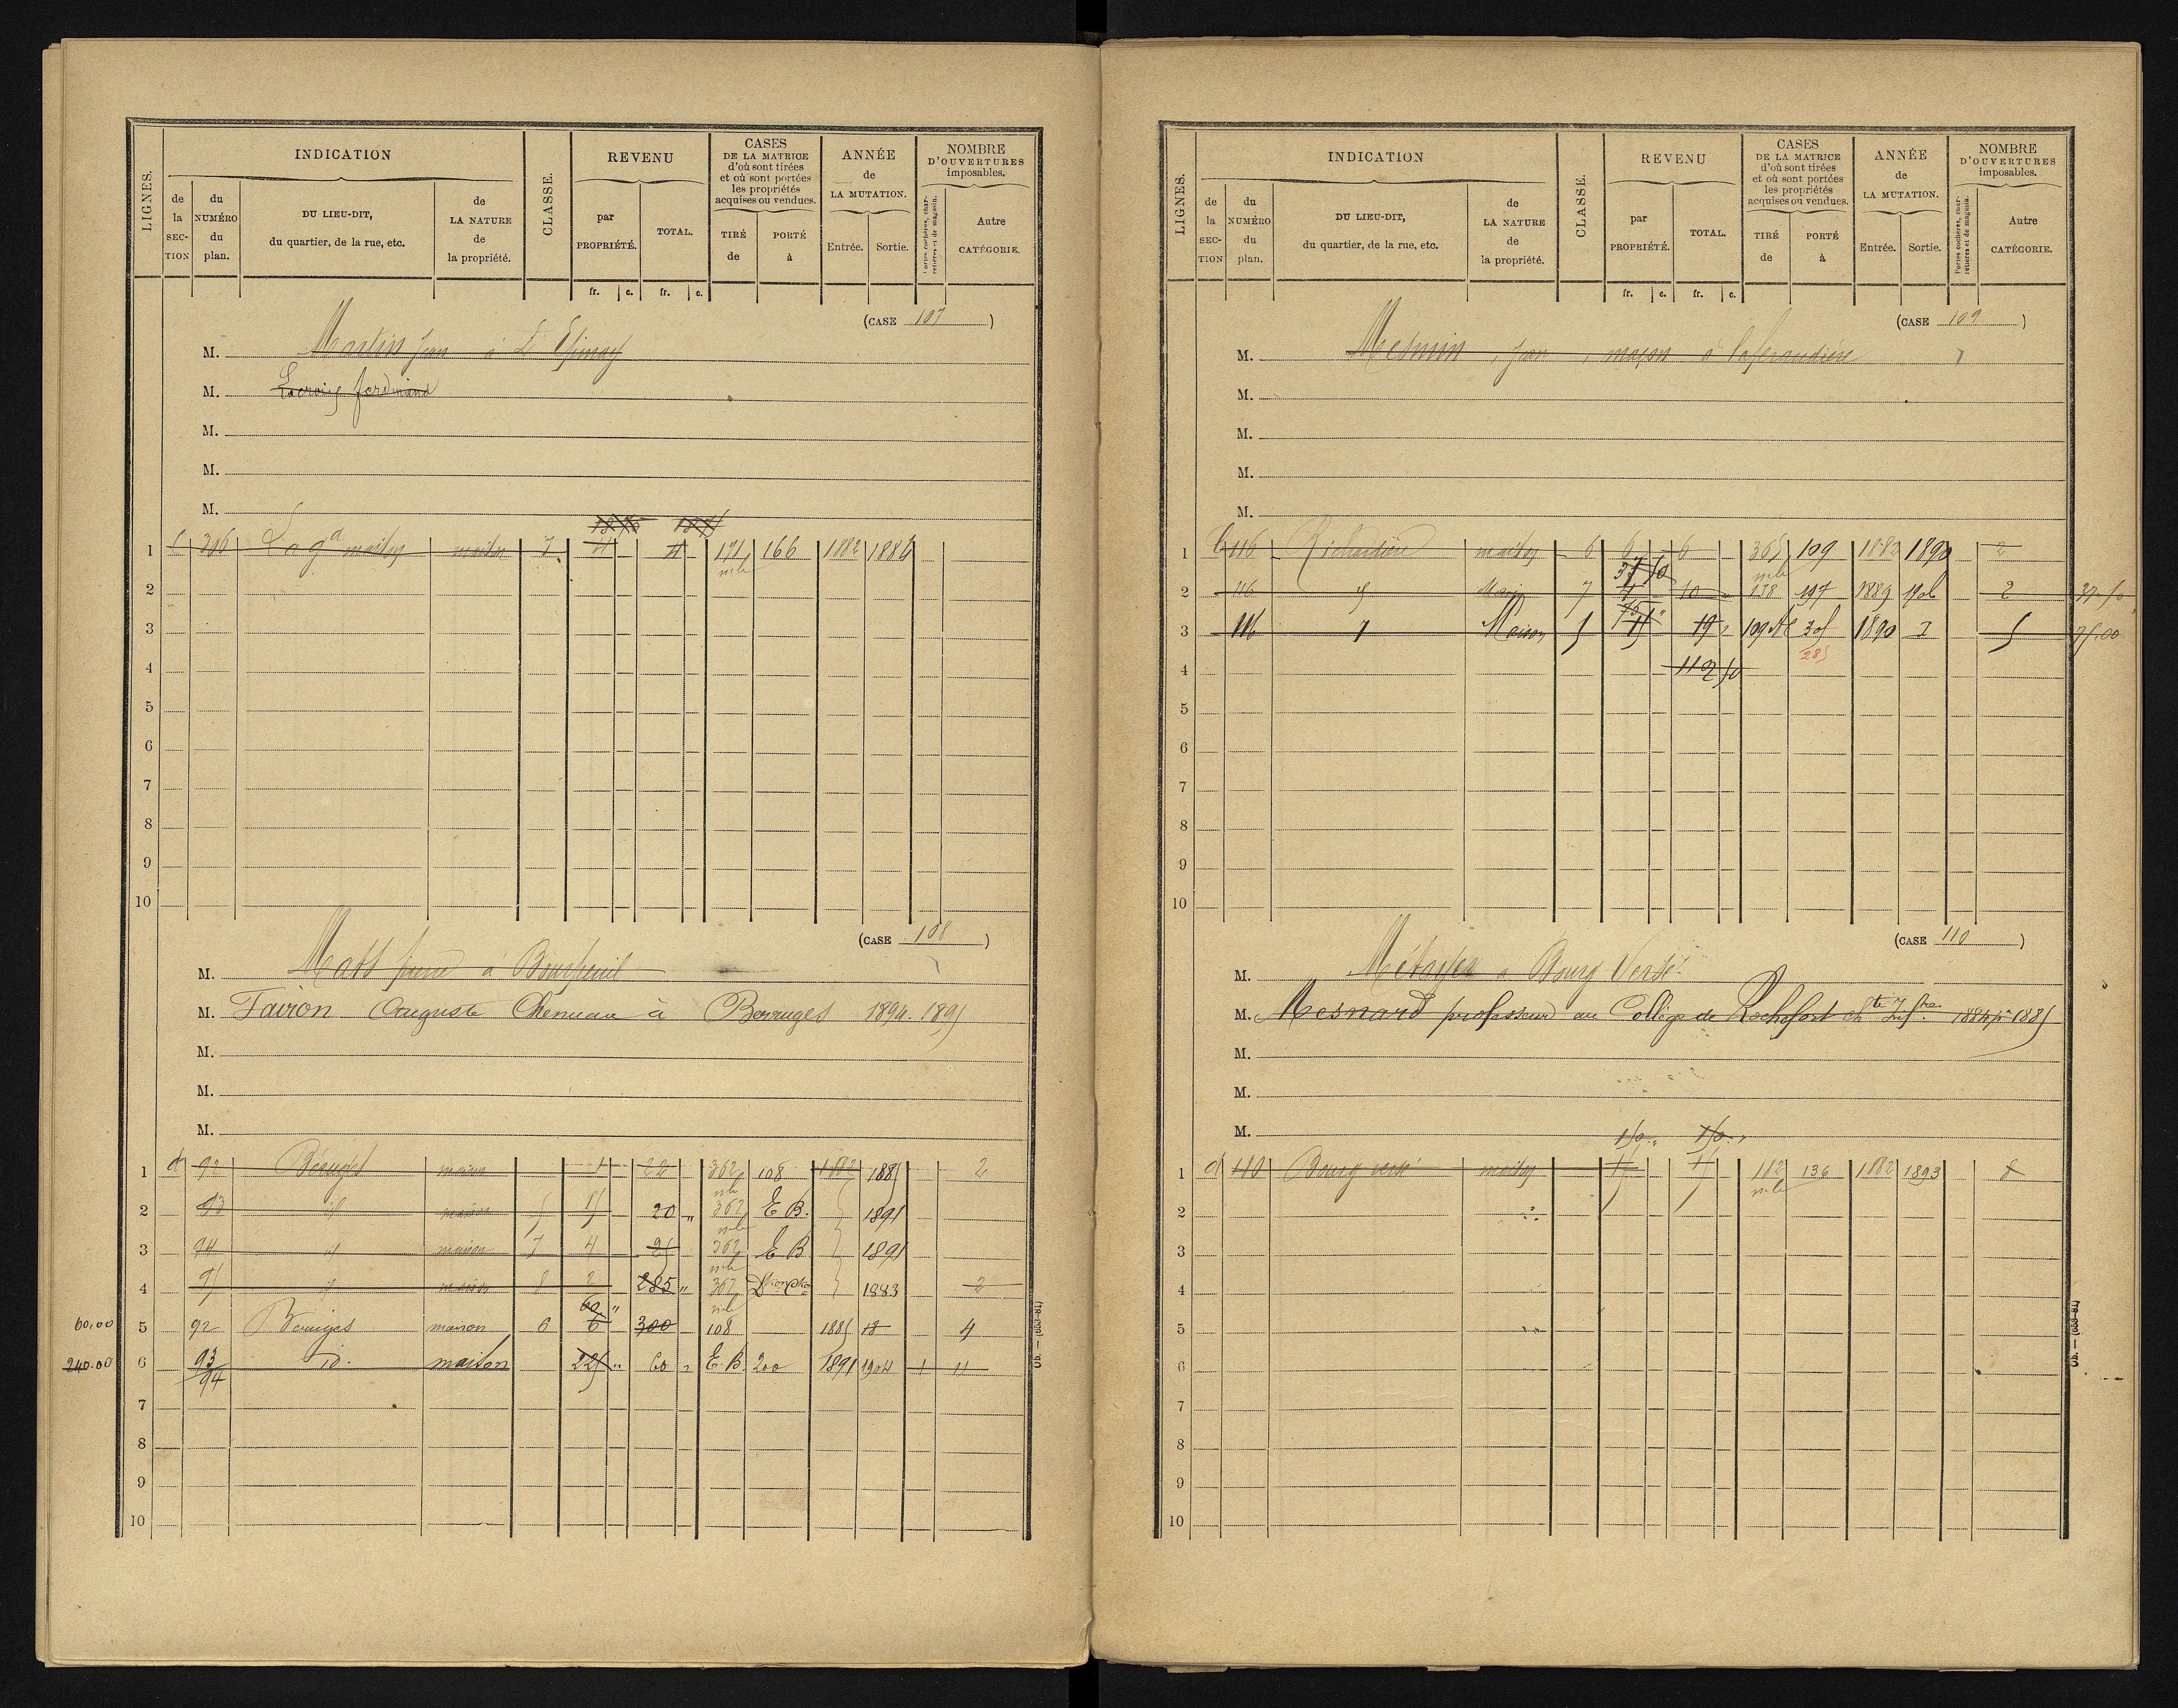 LIGNES.
INDICATION
de la SECTION
du NUMÉRO du plan.
DU LIEU-DIT, du quartier, de la rue, etc.
de LA NATURE de la propriété.
CLASSE.
REVENU
par PROPRIÉTÉ.
TOTAL.
fr. c. fr. c.
CASES DE LA MATRICE d'où sont tirées et où sont portées les propriétés acquises ou vendues.
TIRÉ de
PORTÉ à
ANNÉE de LA MUTATION.
Entrée. Sortie.
NOMBRE D'OUVERTURES imposables.
Portes cochères, charretières et de magasin.
Autre CATÉGORIE.
(CASE 107)
M. Martin Jean à L'Epinay
M. Lacroix ferdinand
M.
M.
M.
18.75
1 C 306 maison 7 4 4 171 166 1882 1886
2
3
4
5
6
7
8
9
10
(CASE 108)
M. à
M. Fairon Auguste à Berruges 1894. 1895
M.
M.
M.
1 d 92 Béruges maison 22 362 108 1882 1885 2
2 93 id maison 5 15 20 " 362 E B. 1891
3 94 id maison 7 4 362 E B 1891
4 95 id maison 8 2 285 " 362 1883 2
60 "
60,00 5 92 Beruges maison 6 6 300 108 1885 18 4
240.00 6 93/94 id. maison 225 " 60 " E. B. 200 1891 1904 1 11
7
8
9
10
Ob. — (659-81)
LIGNES.
INDICATION
de la SECTION
du NUMÉRO du plan.
DU LIEU-DIT, du quartier, de la rue, etc.
de LA NATURE de la propriété.
CLASSE.
REVENU
par PROPRIÉTÉ.
TOTAL.
fr. c. fr. c.
CASES DE LA MATRICE d'où sont tirées et où sont portées les propriétés acquises ou vendues.
TIRÉ de
PORTÉ à
ANNÉE de LA MUTATION.
Entrée. Sortie.
NOMBRE D'OUVERTURES imposables.
Portes cochères, charretières et de magasin.
Autre CATÉGORIE.
(CASE 109)
M. Mesmin, Jean, maçon à
M.
M.
M.
M.
1 116 maison 6 6 6 365 109 1882 1890 2
37 50
2 116 Maison 7 4 10 " 197 1889 1906 2 37.50
75 "
3 116 Maison 5 15 19 " 109 305 1890 I 5 75.00
285
4 112 50
5
6
7
8
9
10
(CASE 110)
M. Métayer à Bourg Versé
M. Mesnard professeur au Collège de Rochefort 1884 1885
M.
M.
M.
150 " 150 "
1 d 180 Bourg versé maison 15 15 182 136 1882 1893 8
2
3
4
5
6
7
8
9
10
Ob. — (659-81)